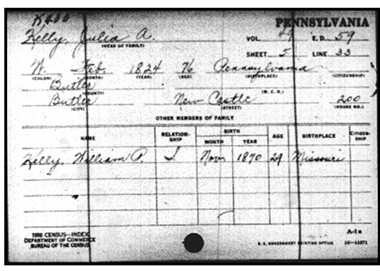 K400 PENNSYLVANIA
Kelly, Julia A. VOL. E.D. 59
(HEAD OF FAMILY)
SHEET 5 LINE 33
W. Feb. 1824 76 Pennsylvania
(COLOR) (MONTH) (YEAR) (AGE) (BIRTHPLACE) (CITIZENSHIP)
Butler
(COUNTY) (M.C.D.)
Butler New Castle 200
(CITY) (STREET) (HOUSE NO.)
OTHER MEMBERS OF FAMILY
NAME RELATIONSHIP BIRTH AGE BIRTHPLACE CITIZENSHIP
MONTH YEAR
Kelly, William P. S Nov 1870 29 Missouri
1900 CENSUS—INDEX A-1a
DEPARTMENT OF COMMERCE
BUREAU OF THE CENSUS U. S. GOVERNMENT PRINTING OFFICE